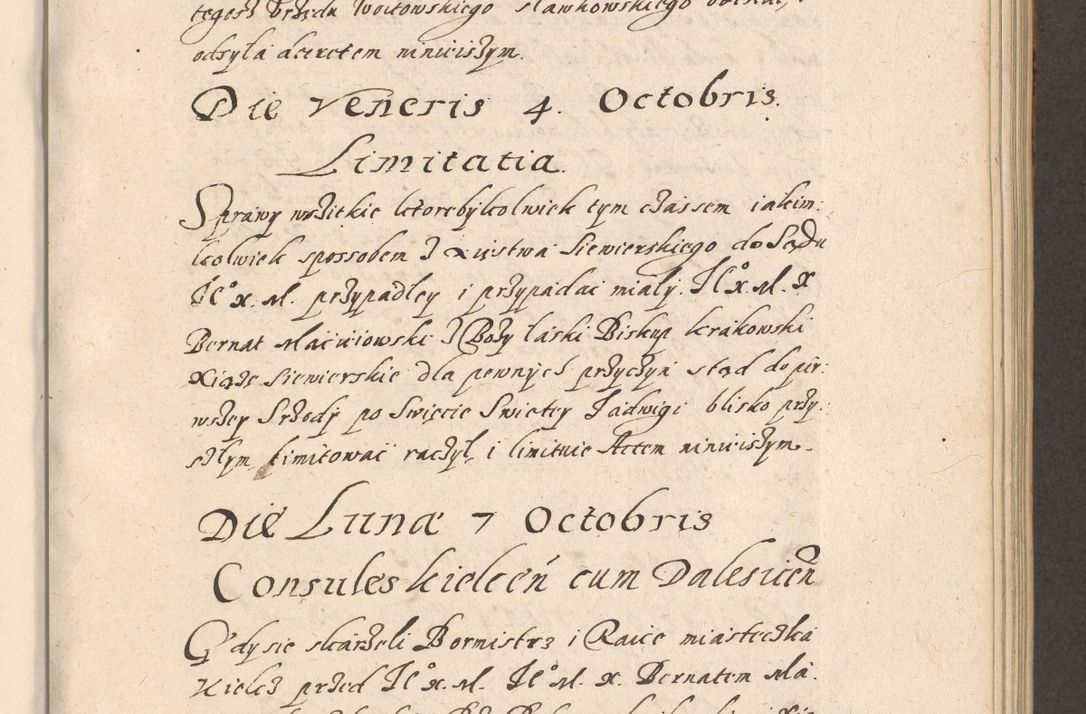 tegosz Vrzędu Woitowskiego Sławkowskiego
odsyła decretem ninieiszym.
Die Veneris 4. Octobris.
Limitatia.
Sprawy wszitkie ktorebykolwiek tym czassem iakim:
kolwiek sposobem z Xięstwa Siewierskiego do Sądu
Je° X. M. przypadley i przypadać miały. Je° X. M. X
Bernat Maciciowski z Boży łaski Biskup krakowski
Xiąże Siewierskie dla pewnych przyczyn stąd do pir:
wszey Srzody po Swięcie Swietey Jadwigi blisko przy:
szłym limitować raczył, i limituie Actem ninieiszym.
Die Lunæ 7 Octobris
Consules kielceń cum Dalesiceñ
Gdy sie skarżeli Bormistrz i Raice miasteczka
Kielcz przed Je° X. M. Je° M. X. Bernatem Ma: